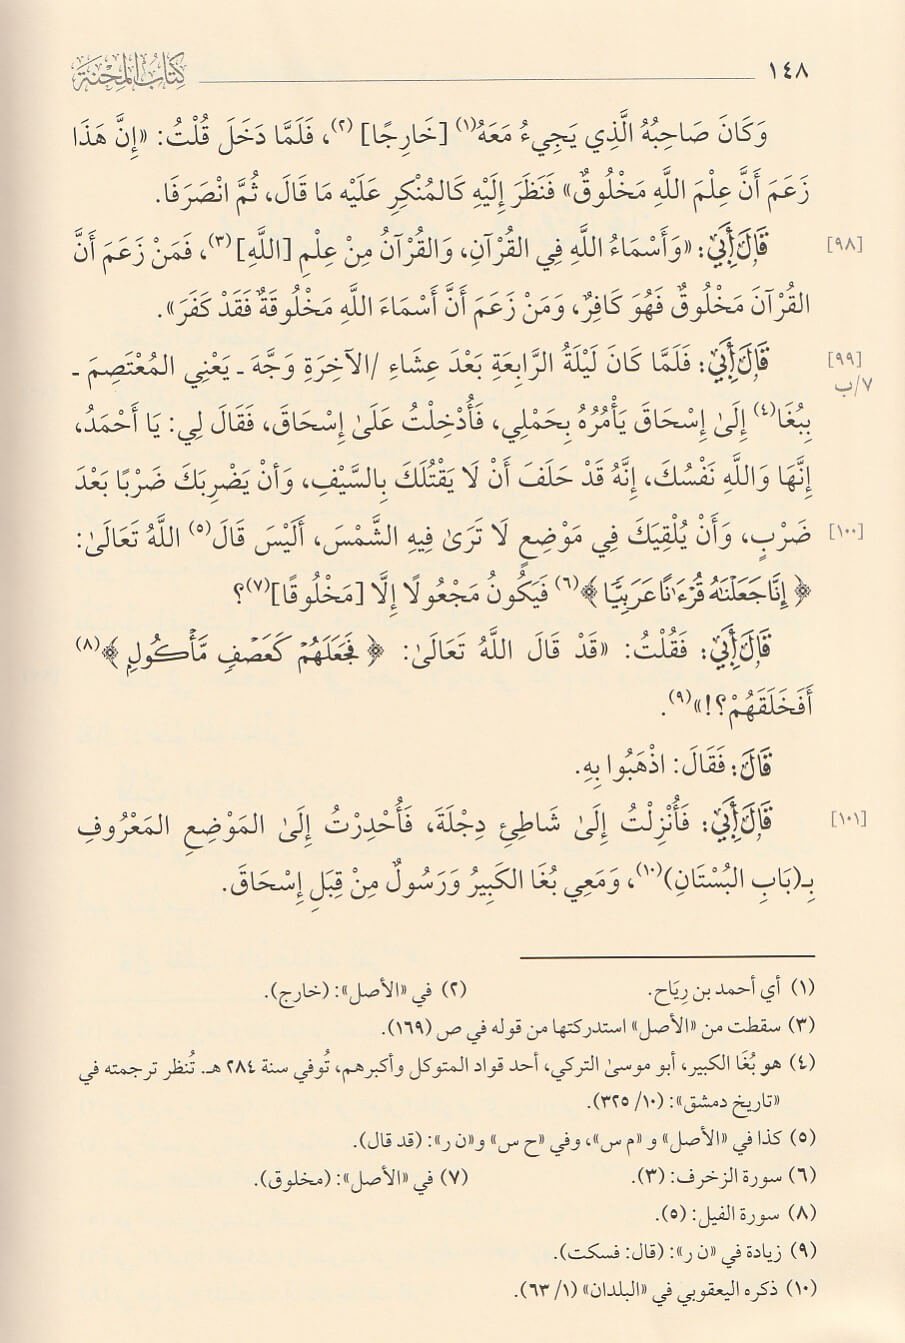 ١٤٨ كِتَابُ المِحْنَةِ
وَكَانَ صَاحِبُهُ الَّذِي يَجِيءُ مَعَهُ(١) [خَارِجًا] (٢)، فَلَمَّا دَخَلَ قُلْتُ: «إِنَّ هَذَا
زَعَمَ أَنَّ عِلْمَ اللَّهِ مَخْلُوقٌ» فَنَظَرَ إِلَيْهِ كَالمُنْكِرِ عَلَيْه مَا قَالَ، ثُمَّ انْصَرَفَا.
[٩٨] قَالَ أَبِي: «وَأَسْمَاءُ اللَّهِ فِي القُرْآنِ، وَالقُرْآنُ مِنْ عِلْمِ [اللَّهِ] (٣)، فَمَنْ زَعَمَ أَنَّ
القُرْآنَ مَخْلُوقٌ فَهُوَ كَافِرٌ، وَمَنْ زَعَمَ أَنَّ أَسْمَاءَ اللَّهِ مَخْلُوقَةٌ فَقَدْ كَفَرَ».
[٩٩] قَالَ أَبِي: فَلَمَّا كَانَ لَيْلَةُ الرَّابِعَةِ بَعْدَ عِشَاءِ /الآخِرَةِ وَجَّهَ ـ يَعْنِي المُعْتَصِمَ ـ
٧/ب
بِبُغَا(٤) إِلَىٰ إِسْحَاقَ يَأْمُرُهُ بِحَمْلِي، فَأُدْخِلْتُ عَلَىٰ إِسْحَاقَ، فَقَالَ لِي: يَا أَحْمَدُ،
إِنَّهَا وَاللَّهِ نَفْسُكَ، إِنَّهُ قَدْ حَلَفَ أَنْ لَا يَقْتُلَكَ بِالسَّيْفِ، وَأَنْ يَضْرِبَكَ ضَرْبًا بَعْدَ
[١٠٠] ضَرْبٍ، وَأَنْ يُلْقِيَكَ فِي مَوْضِعٍ لَا تَرَىٰ فِيهِ الشَّمْسَ، أَلَيْسَ قَالَ(٥) اللَّهُ تَعَالَىٰ:
﴿إِنَّا جَعَلْنَٰهُ قُرْءَٰنًا عَرَبِيًّا﴾(٦) فَيَكُونُ مَجْعُولًا إِلَّا [مَخْلُوقًا](٧)؟
قَالَ أَبِي: فَقُلْتُ: «قَدْ قَالَ اللَّهُ تَعَالَىٰ: ﴿فَجَعَلَهُمْ كَعَصْفٍ مَّأْكُولٍ﴾(٨)
أَفَخَلَقَهُمْ؟!»(٩).
قَالَ: فَقَالَ: اذْهَبُوا بِهِ.
[١٠١] قَالَ أَبِي: فَأُنْزِلْتُ إِلَىٰ شَاطِئِ دِجْلَةَ، فَأُحْدِرْتُ إِلَىٰ المَوْضِعِ المَعْرُوفِ
بِـ(بَابِ البُسْتَانِ)(١٠)، وَمَعِي بُغَا الكَبِيرُ وَرَسُولٌ مِنْ قِبَلِ إِسْحَاقَ.
(١) أي أحمد بن رِيَاح. (٢) في «الأصل»: (خارج).
(٣) سقطت من «الأصل» استدركتها من قوله في ص (١٦٩).
(٤) هو بُغَا الكبير، أبو موسىٰ التركي، أحد قواد المتوكل وأكبرهم، تُوفي سنة ٢٨٤ هـ. تُنظر ترجمته في
«تاريخ دمشق»: (١٠/ ٣٢٥).
(٥) كذا في «الأصل» و «م س»، وفي «ح س» و«ن ر»: (قد قال).
(٦) سورة الزخرف: (٣). (٧) في «الأصل»: (مخلوق).
(٨) سورة الفيل: (٥).
(٩) زيادة في «ن ر»: (قال: فسكت).
(١٠) ذكره اليعقوبي في «البلدان» (١/ ٦٣).